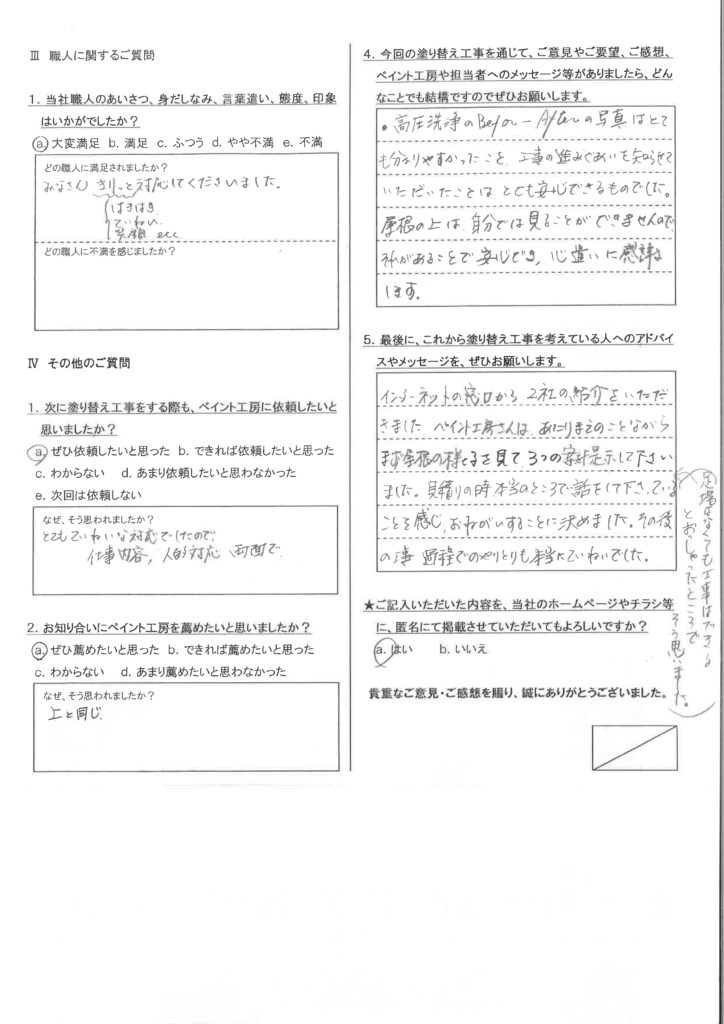 Ⅲ 職人に関するご質問
1. 当社職人のあいさつ、身だしなみ、言葉遣い、態度、印象
はいかがでしたか？
a. 大変満足 b. 満足 c. ふつう d. やや不満 e. 不満
どの職人に満足されましたか？
みなさん きりっと対応してくださいました。
はきはき
ていねい
笑顔 etc
どの職人に不満を感じましたか？
Ⅳ その他のご質問
1. 次に塗り替え工事をする際も、ペイント工房に依頼したいと
思いましたか？
a. ぜひ依頼したいと思った b. できれば依頼したいと思った
c. わからない d. あまり依頼したいと思わなかった
e. 次回は依頼しない
なぜ、そう思われましたか？
とてもていねいな対応でしたので、
仕事内容，人的対応 両面で
2. お知り合いにペイント工房を薦めたいと思いましたか？
a. ぜひ薦めたいと思った b. できれば薦めたいと思った
c. わからない d. あまり薦めたいと思わなかった
なぜ、そう思われましたか？
上と同じ．
4. 今回の塗り替え工事を通じて、ご意見やご要望、ご感想、
ペイント工房や担当者へのメッセージ等がありましたら、どん
なことでも結構ですのでぜひお願いします。
・高圧洗浄の Before－Afterの写真はとて
も分かりやすかったこと、工事の進みぐあいを知らせて
いただいたことは とても安心できるものでした。
屋根の上は、自分では見ることができませんので、
それがあることで安心でき，心遣いに感謝
します．
5. 最後に、これから塗り替え工事を考えている人へのアドバイ
スやメッセージを、ぜひお願いします。
インターネットの窓口から 2社の紹介をいただ
きました ペイント工房さんは、あたりまえのことながら
まず屋根の様子を見て 3つの案を提示して下さい
ました。見積りの時 本当のところで話をして下さっている
ことを感じ，おねがいすることに決めました。その後
の工事 過程でのやりとりも本当にていねいでした。
（足場はなくても工事はできる
とおっしゃったところで
そう思いました。）
★ご記入いただいた内容を、当社のホームページやチラシ等
に、匿名にて掲載させていただいてもよろしいですか？
a. はい b. いいえ
貴重なご意見・ご感想を賜り、誠にありがとうございました。